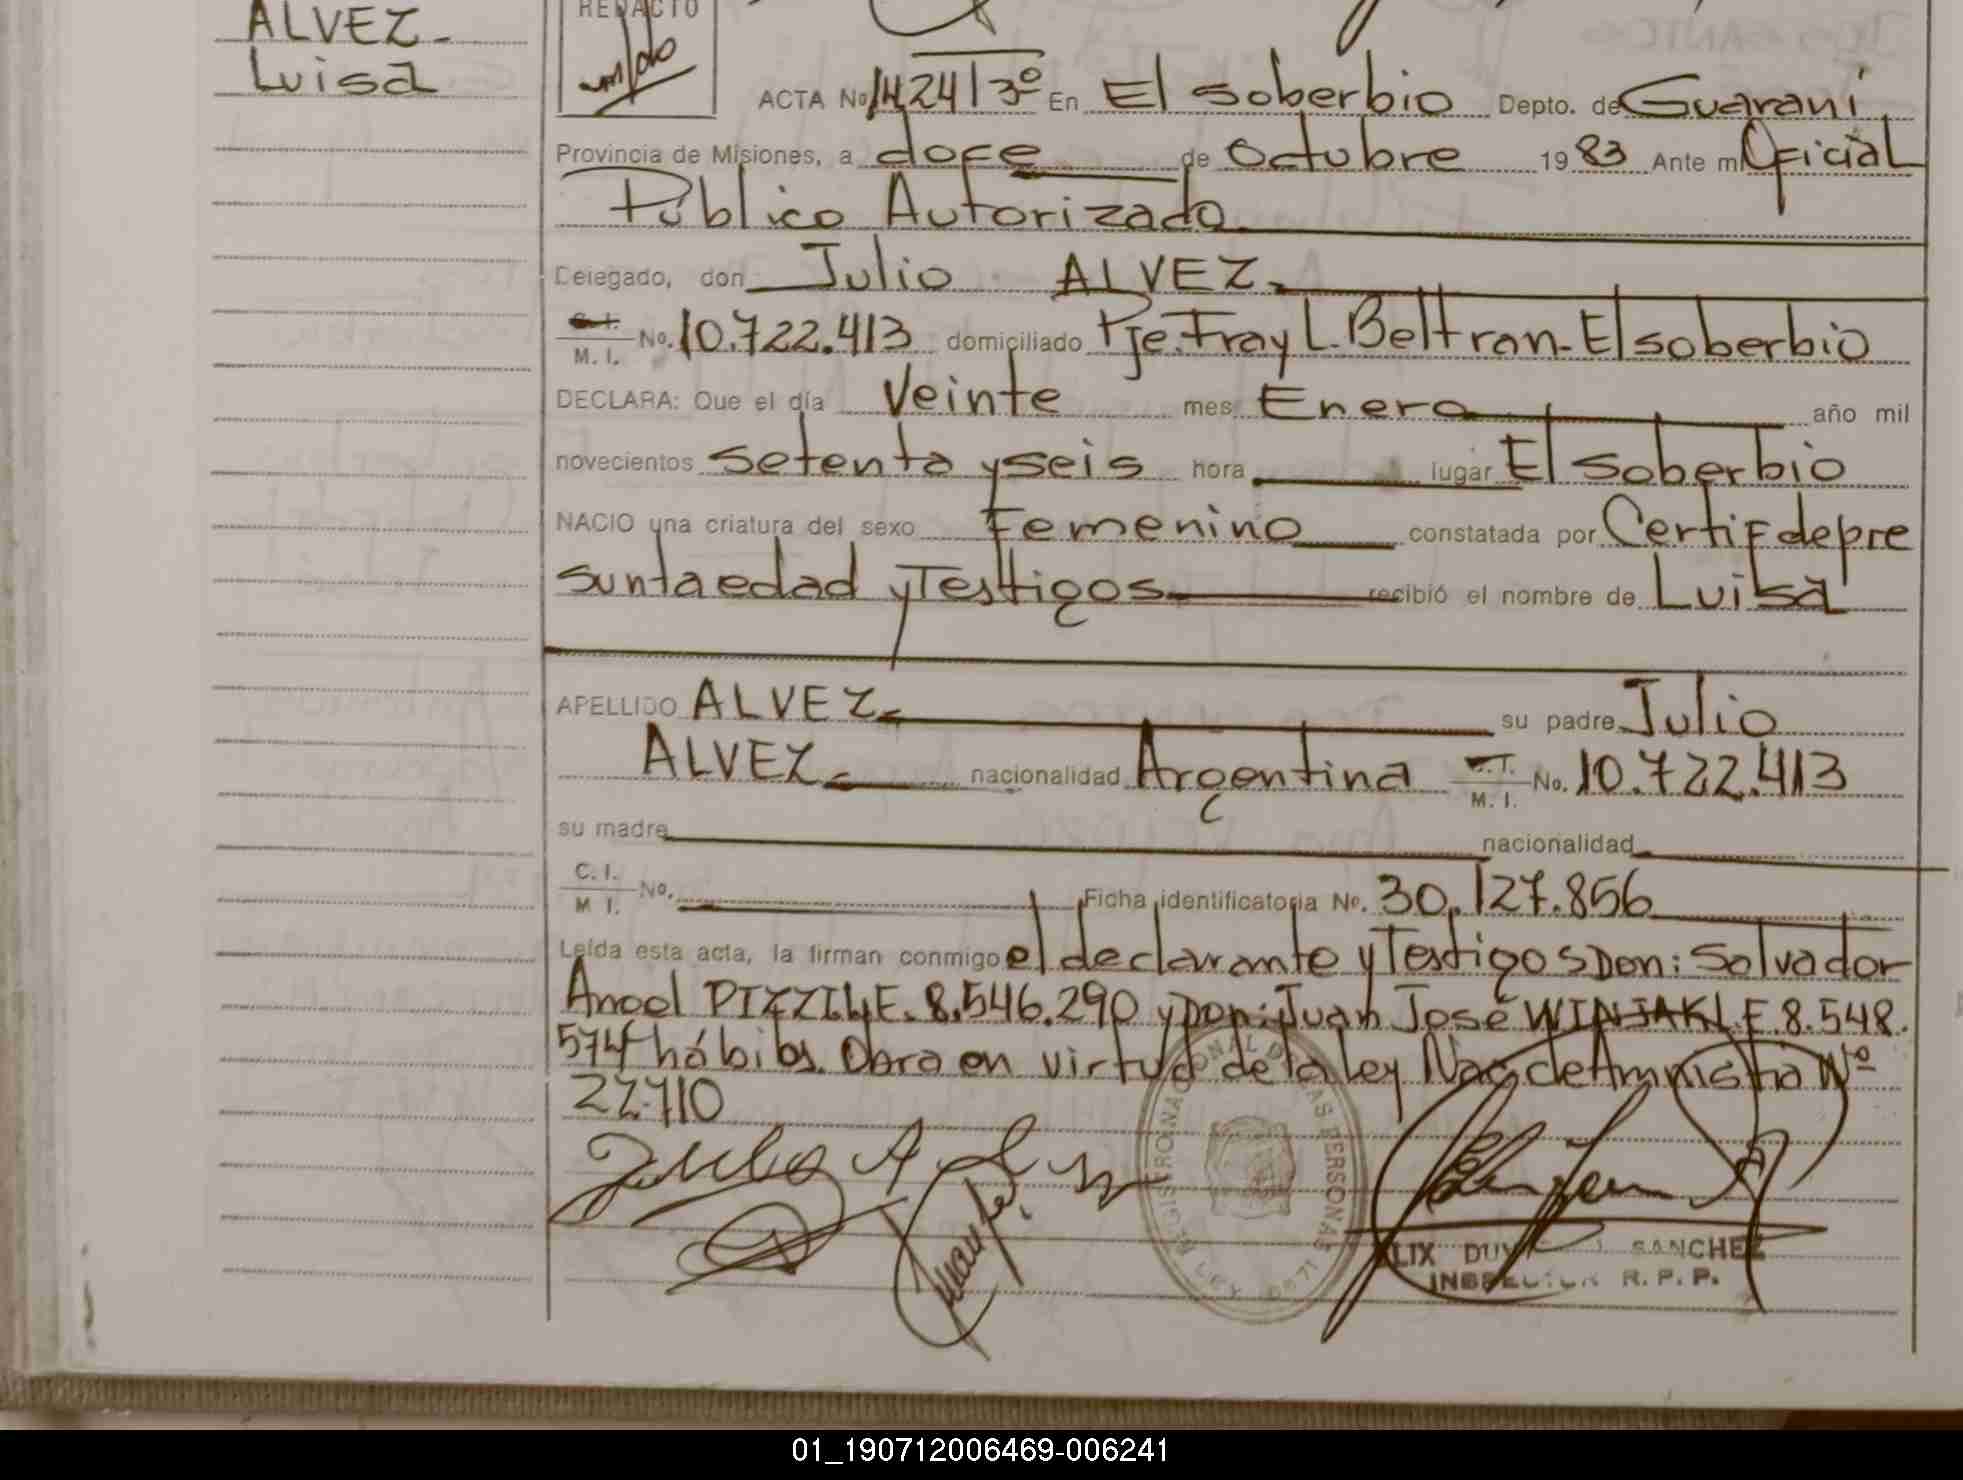 ALVEZ-
Luisa
REDACTO
ACTA No 1424 | 3º En El Soberbio Depto. de Guarani
Provincia de Misiones, a doce de Octubre 1983 Ante mi Oficial
Público Autorizado
Delegado, don Julio ALVEZ.
C. I. / M. I. No. 10.722.413 domiciliado Pje. Fray L. Beltran - El soberbio
DECLARA: Que el día Veinte mes Enero año mil
novecientos setenta y seis hora lugar El soberbio
NACIO una criatura del sexo Femenino constatada por Certif de pre
sunta edad y Testigos recibió el nombre de Luisa
APELLIDO ALVEZ su padre Julio
ALVEZ nacionalidad Argentina C.I. / M. I. No. 10.722.413
su madre nacionalidad
C. I. / M I. No. Ficha identificatoria No. 30.127.856
Leída esta acta, la firman conmigo el declarante y Testigos Don: Salvador
Angel L.E. 8.546.290 y Don: Juan José L.E. 8.548.
574 hábiles. Obra en virtud de la ley Nac de Amnistia Nº
22.710
REGISTRO NACIONAL DE LAS PERSONAS
SANCHEZ
INSPECTOR R. P. P.
01_190712006469-006241